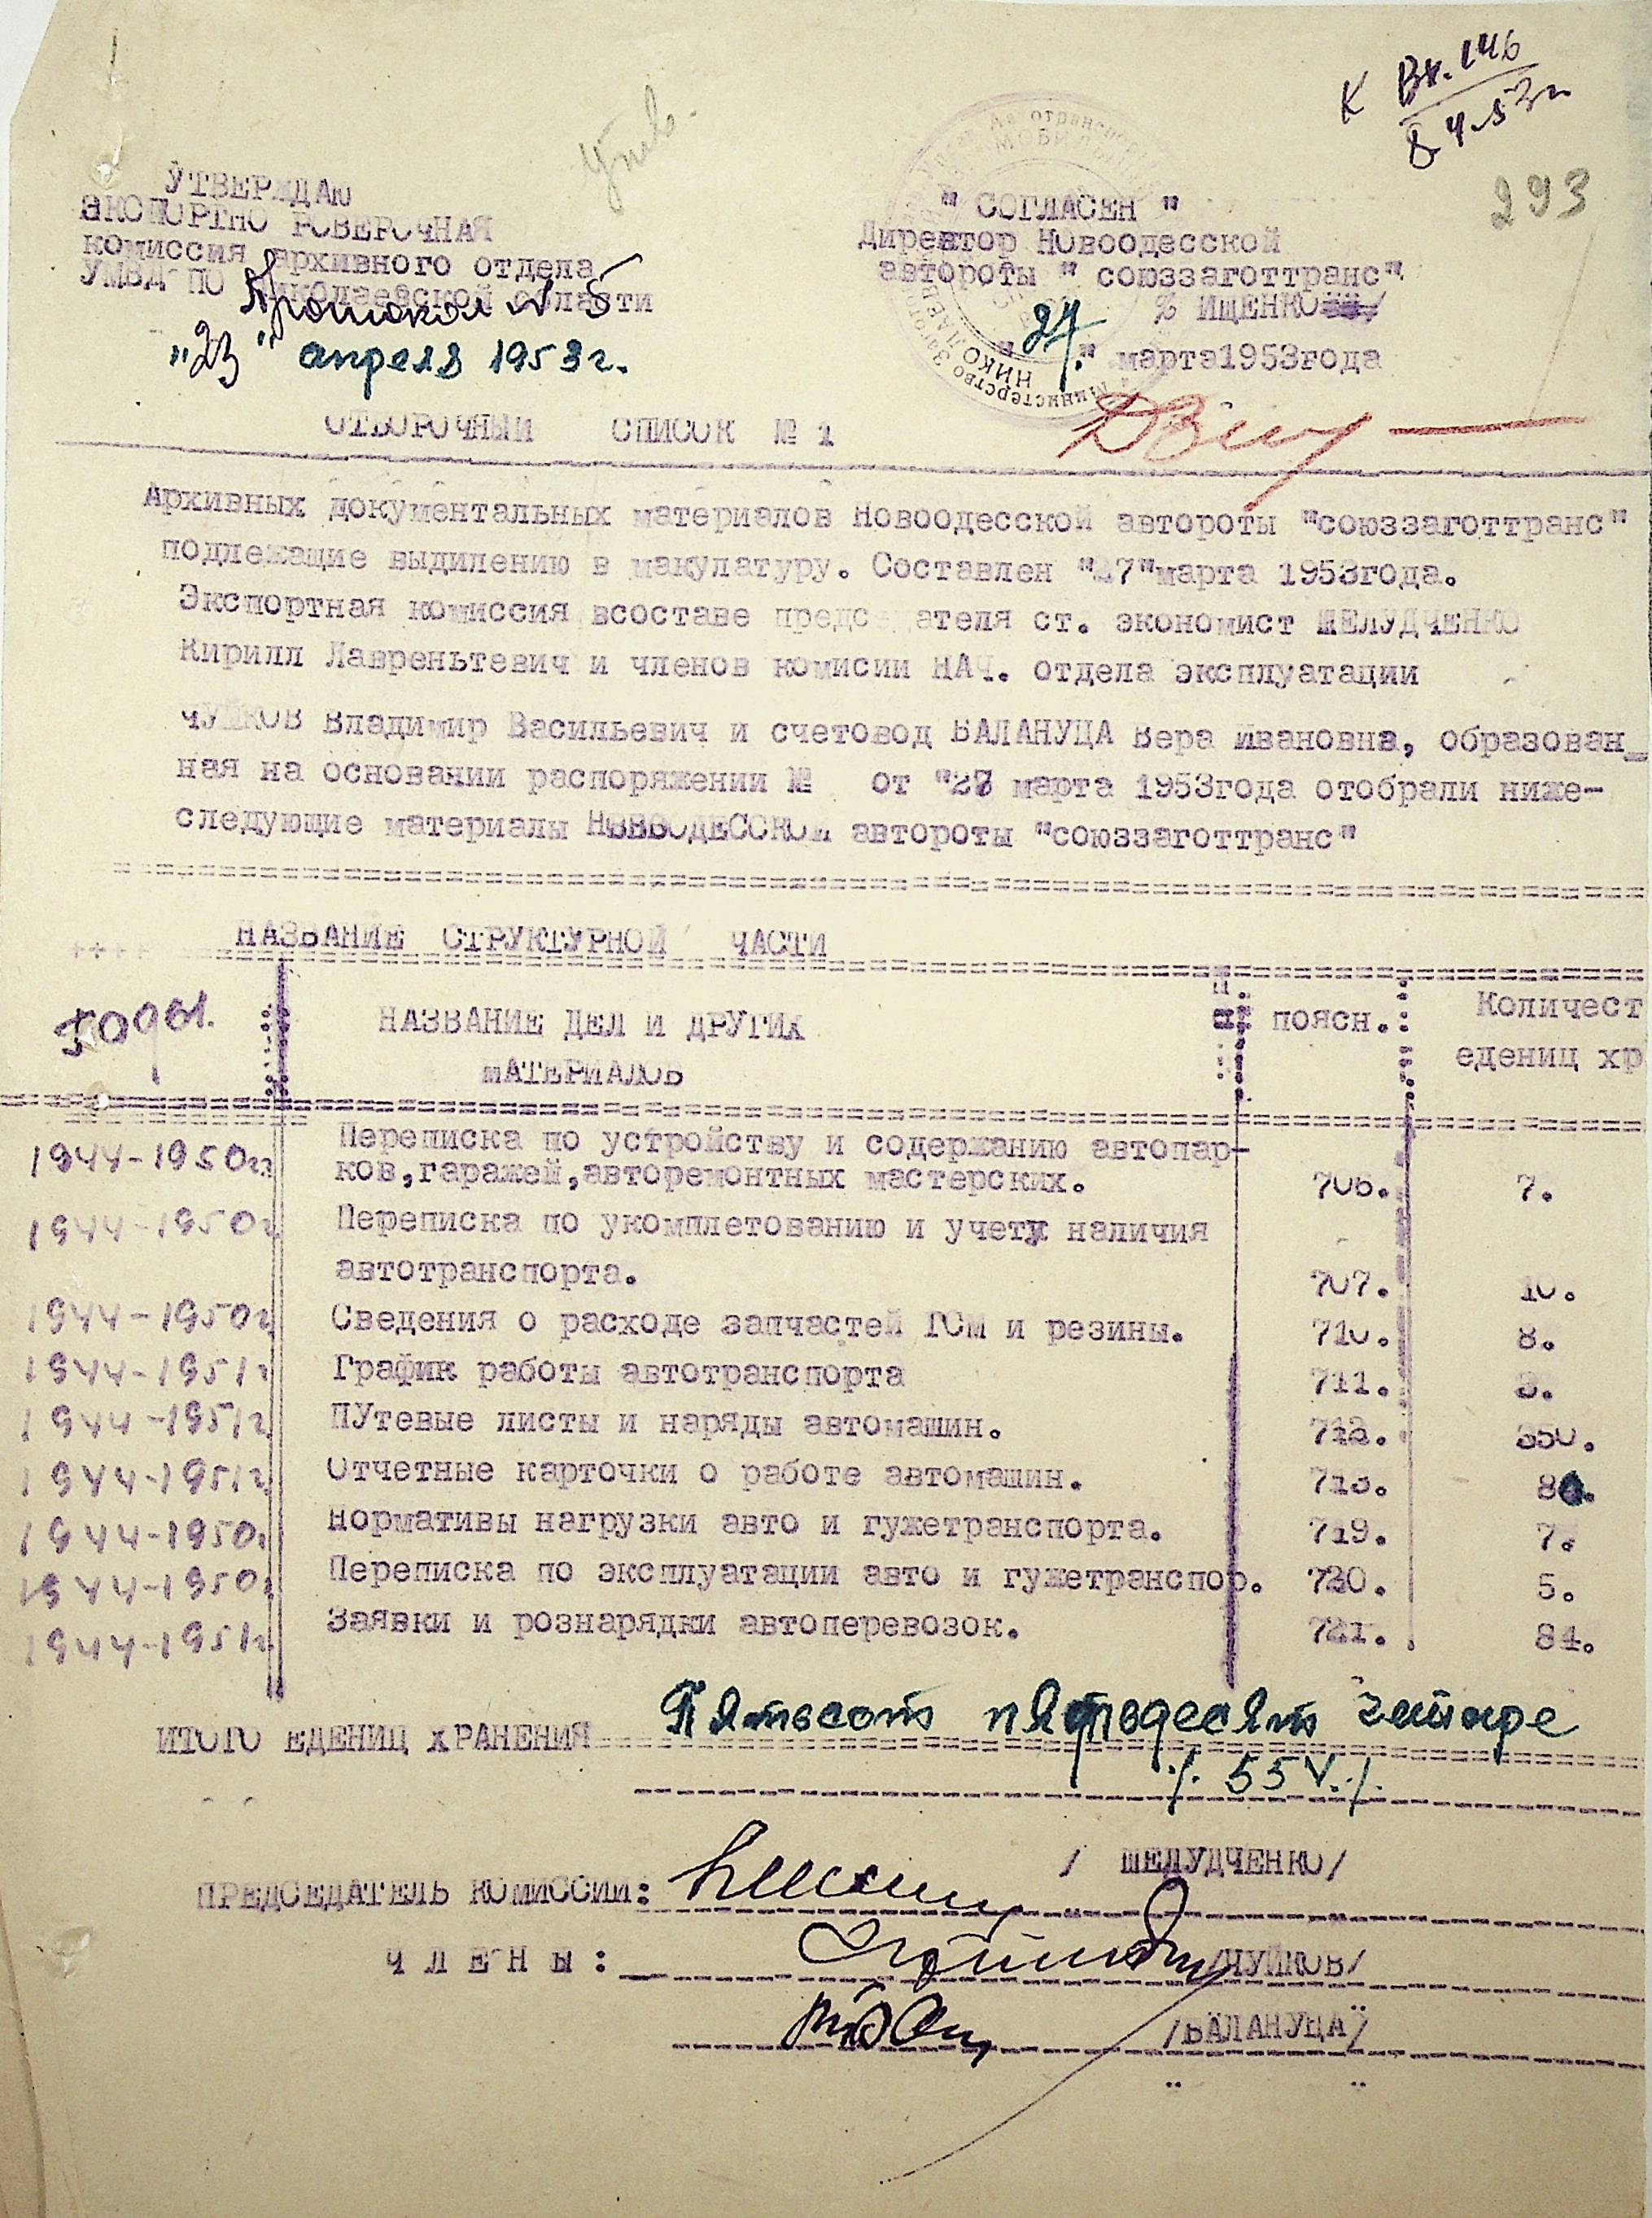 К Вх. 146
8 4-53г
293
Утв.
УТВЕРЖДАЮ
ЭКСПОРТПО РОВЕРОЧНАЯ
комиссия архивного отдела
УМВД ПО Николаевской области
Протокол № 5
"23" апреля 1953г.
" СОГЛАСЕН "
Директор Новоодесской
автороты " союззаготтранс"
% ИЩЕНКО
"27" марта1953года
ОТБОРОЧНЫЙ СПИСОК № 1
Архивных документальных материалов Новоодесской автороты "союззаготтранс"
подлежащие выдилению в макулатуру. Составлен "27"марта 1953года.
Экспортная комиссия всоставе предс ателя ст. экономист ШЕЛУДЧЕНКО
Кирилл Лавреньтевич и членов комисии НАЧ. отдела эксплуатации
ЧУЙКОВ Владимир Васильевич и счетовод БАЛАНУЦА Вера Ивановна, образован_
ная на основании распоряжении № от "27 марта 1953года отобрали ниже-
следующие материалы НОВООДЕССКОЙ автороты "союззаготтранс"
НАЗВАНИЕ СТРУКТУРНОЙ ЧАСТИ
годы. НАЗВАНИЕ ДЕЛ И ДРУГИХ поясн. Количест
МАТЕРИАЛОВ едениц хр
1944-1950г Переписка по устройству и содержанию автопар-
ков,гаражей,авторемонтных мастерских. 706. 7.
1944-1950г Переписка по укомплетованию и учету наличия
автотранспорта. 707. 10.
1944-1950г Сведения о расходе запчастей ГСМ и резины. 710. 8.
1944-1951г График работы автотранспорта 711. 3.
1944-1951г ПУтевые листы и наряды автомашин. 712. 350.
1944-1951г Отчетные карточки о работе автомашин. 713. 80.
1944-1950г Нормативы нагрузки авто и гужетранспорта. 719. 7.
1944-1950г Переписка по эксплуатации авто и гужетранспор. 720. 5.
1944-1951г Заявки и рознарядки автоперевозок. 721. 84.
ИТОГО ЕДЕНИЦ ХРАНЕНИЯ Пятьсот пятьдесят четыре
/. 554./.
ПРЕДСЕДАТЕЛЬ КОМИССИИ: / ШЕЛУДЧЕНКО/
Ч Л Е Н Ы : /ЧУЙКОВ/
/БАЛАНУЦА/